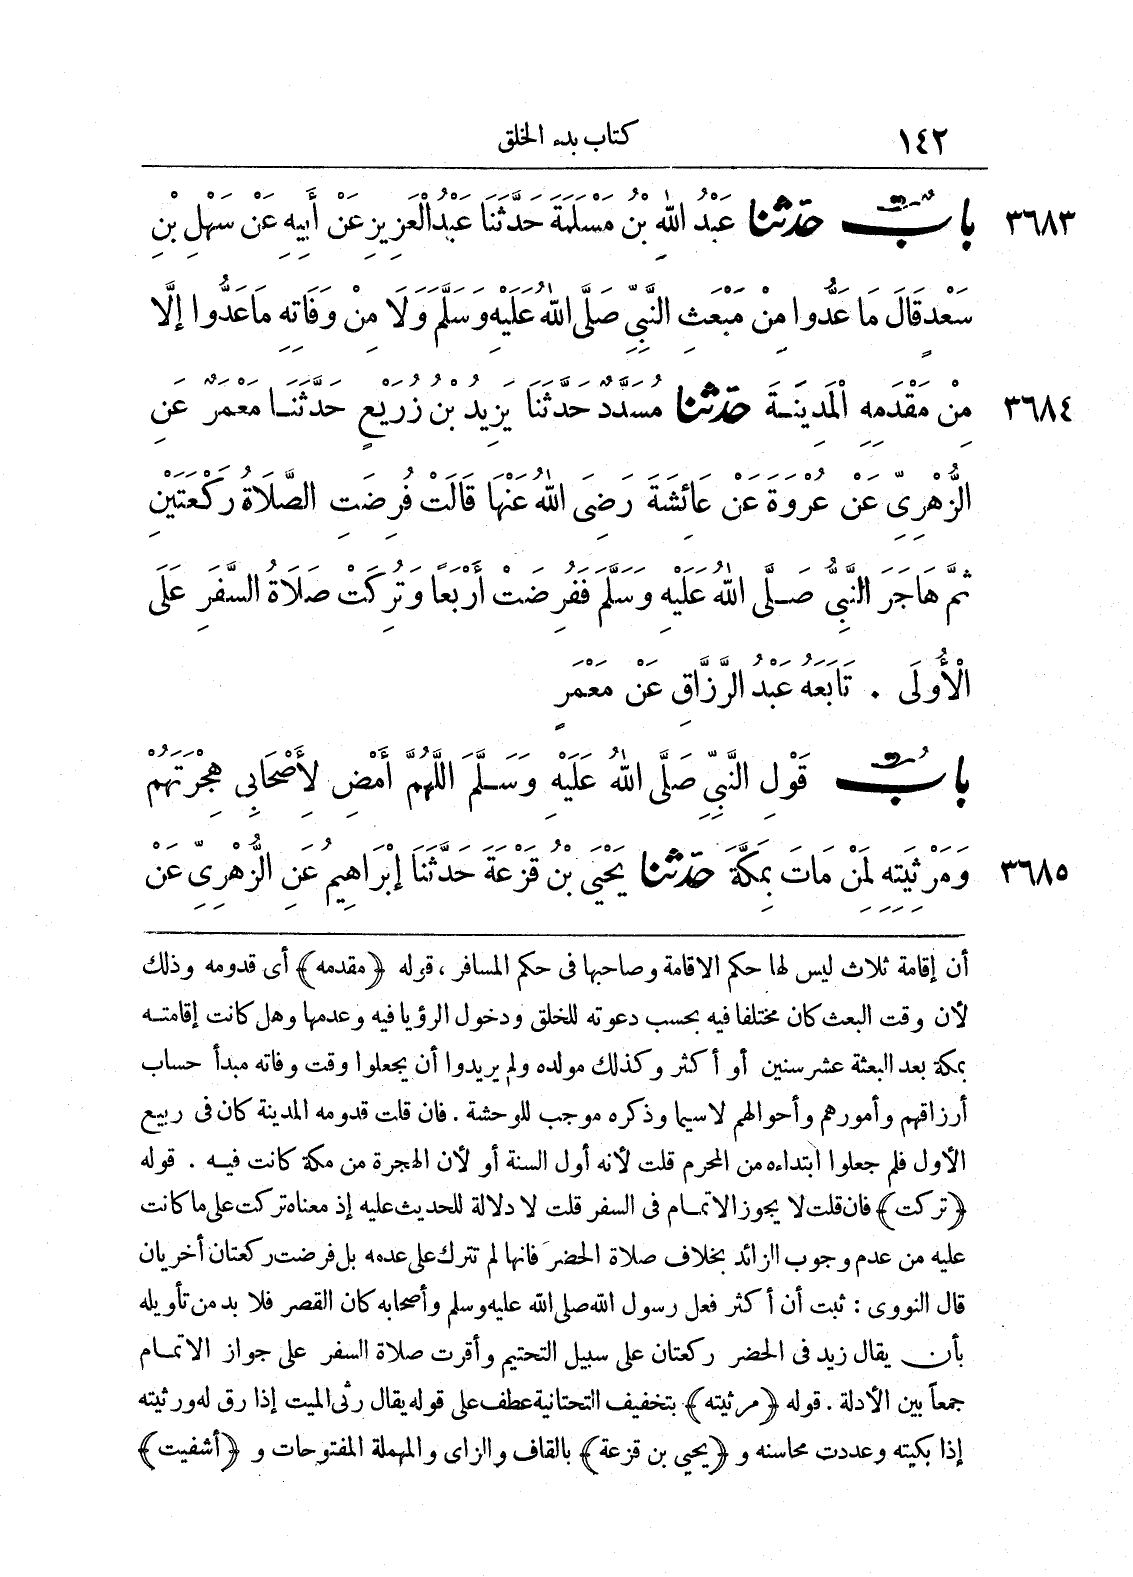 ١٤٢ كتاب بدء الخلق
٣٦٨٣ بَابٌ حَدَّثَنَا عَبْدُ اللهِ بْنُ مَسْلَمَةَ حَدَّثَنَا عَبْدُ الْعَزِيزِ عَنْ أَبِيهِ عَنْ سَهْلِ بْنِ
سَعْدٍ قَالَ مَا عَدُّوا مِنْ مَبْعَثِ النَّبِيِّ صَلَّى اللهُ عَلَيْهِ وَسَلَّمَ وَلَا مِنْ وَفَاتِهِ مَا عَدُّوا إِلَّا
٣٦٨٤ مِنْ مَقْدَمِهِ الْمَدِينَةَ حَدَّثَنَا مُسَدَّدٌ حَدَّثَنَا يَزِيدُ بْنُ زُرَيْعٍ حَدَّثَنَا مَعْمَرٌ عَنِ
الزُّهْرِيِّ عَنْ عُرْوَةَ عَنْ عَائِشَةَ رَضِىَ اللهُ عَنْهَا قَالَتْ فُرِضَتِ الصَّلَاةُ رَكْعَتَيْنِ
ثُمَّ هَاجَرَ النَّبِيُّ صَلَّى اللهُ عَلَيْهِ وَسَلَّمَ فَفُرِضَتْ أَرْبَعًا وَتُرِكَتْ صَلَاةُ السَّفَرِ عَلَى
الْأُولَى . تَابَعَهُ عَبْدُ الرَّزَّاقِ عَنْ مَعْمَرٍ
بَابُ قَوْلِ النَّبِيِّ صَلَّى اللهُ عَلَيْهِ وَسَلَّمَ اللَّهُمَّ أَمْضِ لِأَصْحَابِي هِجْرَتَهُمْ
٣٦٨٥ وَمَرْثِيَتِهِ لِمَنْ مَاتَ بِمَكَّةَ حَدَّثَنَا يَحْيَى بْنُ قَزَعَةَ حَدَّثَنَا إِبْرَاهِيمُ عَنِ الزُّهْرِىِّ عَنْ
أن إقامة ثلاث ليس لها حكم الاقامة وصاحبها فى حكم المسافر ، قوله ﴿مقدمه﴾ أى قدومه وذلك
لأن وقت البعث كان مختلفا فيه بحسب دعوته للخلق ودخول الرؤيا فيه وعدمها وهل كانت إقامته
بمكة بعد البعثة عشر سنين أو أكثر وكذلك مولده ولم يريدوا أن يجعلوا وقت وفاته مبدأ حساب
أرزاقهم وأمورهم وأحوالهم لا سيما وذكره موجب للوحشة . فان قلت قدومه المدينة كان فى ربيع
الأول فلم جعلوا ابتداءه من المحرم قلت لأنه أول السنة أو لأن الهجرة من مكة كانت فيه . قوله
﴿تركت﴾ فان قلت لا يجوز الاتمام فى السفر قلت لا دلالة للحديث عليه إذ معناه تركت على ما كانت
عليه من عدم وجوب الزائد بخلاف صلاة الحضر فانها لم تترك على عدمه بل فرضت ركعتان أخريان
قال النووى : ثبت أن أكثر فعل رسول الله صلى الله عليه وسلم وأصحابه كان القصر فلا بد من تأويله
بأن يقال زيد فى الحضر ركعتان على سبيل التحتيم وأقرت صلاة السفر على جواز الاتمام
جمعاً بين الأدلة . قوله ﴿مرثيته﴾ بتخفيف التحتانية عطف على قوله يقال رثى الميت إذا رق له ورثيته
إذا بكيته وعددت محاسنه و ﴿يحيى بن قزعة﴾ بالقاف والزاى والمهملة المفتوحات و ﴿أشفيت﴾